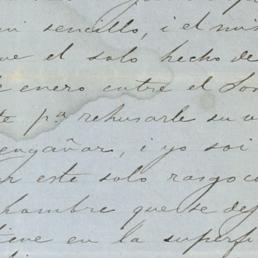 mi sencillo, i el mis
ue el solo hecho de
e enero entre el Son
to pª rehusarle su v
engañar, i yo soi
ar este solo rasgo c
hombre que se dej
iene en la superf